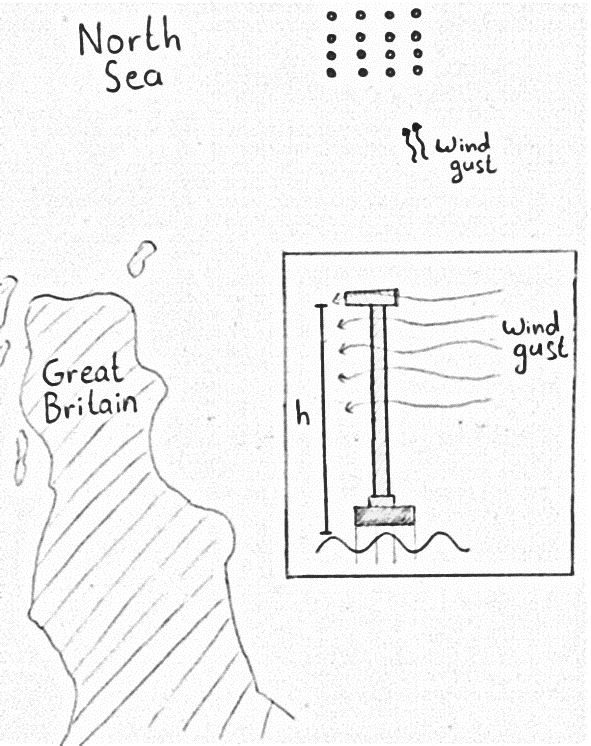 North
Sea
Wind
gust
Great
Britain
Wind
gust
h